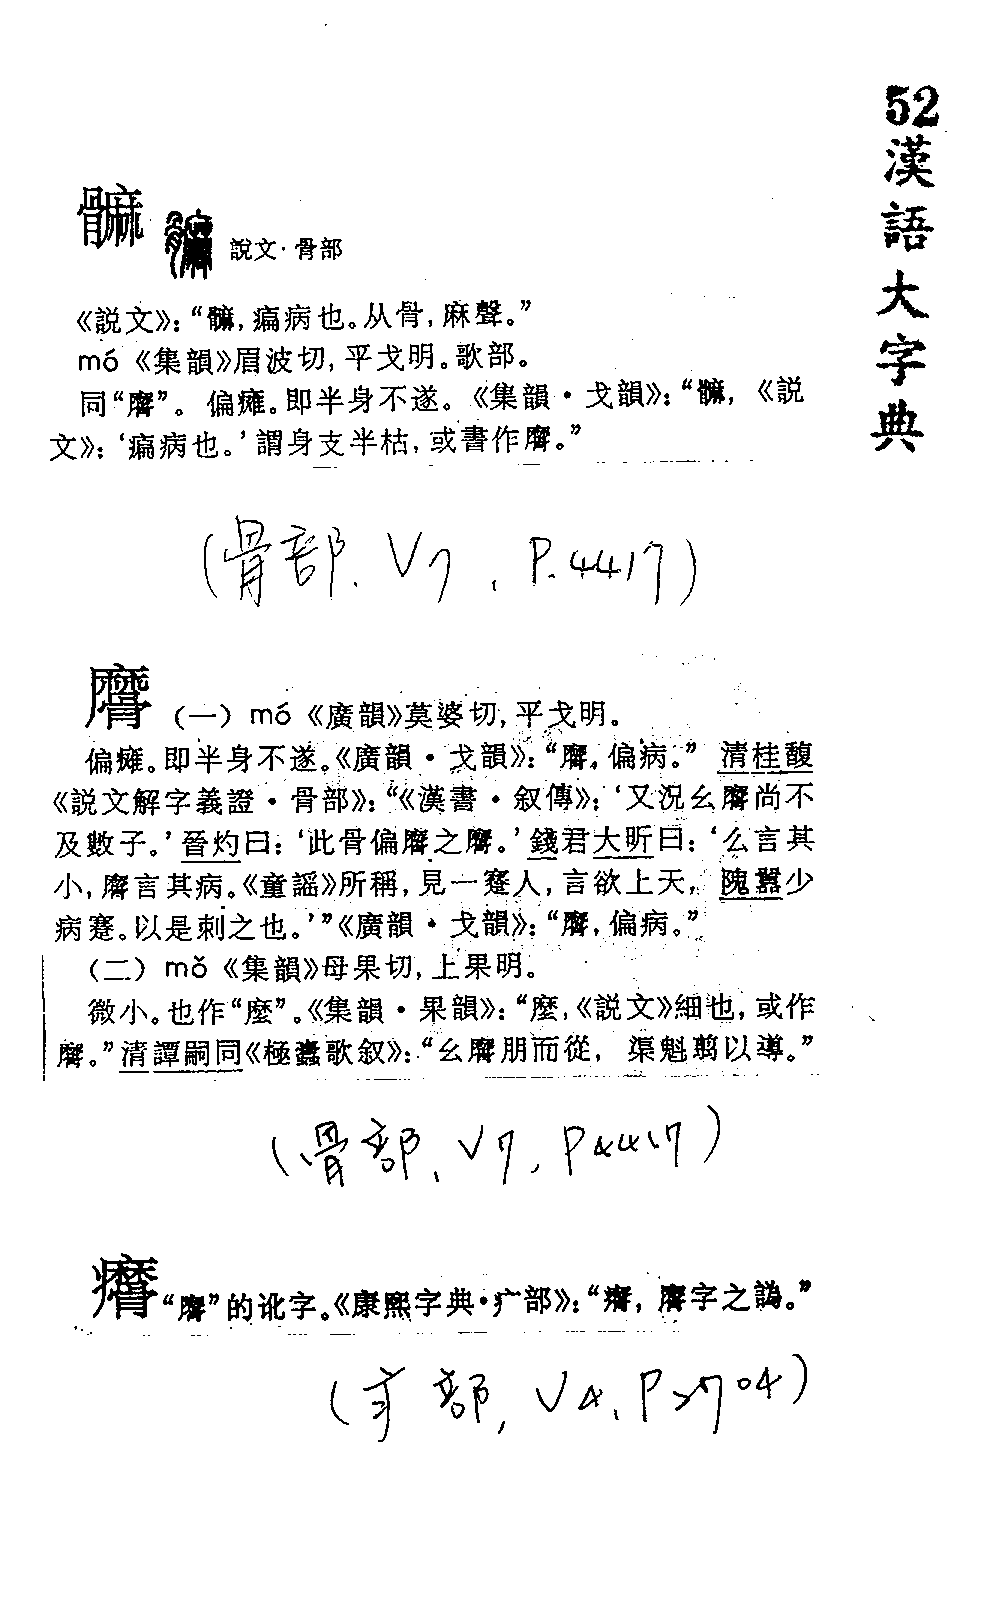 52漢語大字典
䯢 說文·骨部
《説文》：“䯢，瘺病也。从骨，麻聲。”
mó《集韻》眉波切，平戈明。歌部。
同“髍”。偏癱。即半身不遂。《集韻·戈韻》：“䯢，《説
文》：‘瘺病也。’謂身支半枯，或書作髍。”
（骨部、V7、P.4417）
髍（一）mó《廣韻》莫婆切，平戈明。
偏癱。即半身不遂。《廣韻·戈韻》：“髍，偏病。”清桂馥
《説文解字義證·骨部》：“《漢書·叙傳》：‘又況幺髍尚不
及數子。’晉灼曰：‘此骨偏髍之髍。’錢君大昕曰：‘么言其
小，髍言其病。《童謡》所稱，見一蹇人，言欲上天，隗囂少
病蹇。以是刺之也。’”《廣韻·戈韻》：“髍，偏病。”
（二）mǒ《集韻》母果切，上果明。
微小。也作“麼”。《集韻·果韻》：“麼，《説文》細也，或作
髍。”清譚嗣同《極蠹歌叙》：“幺髍朋而從，渠魁翦以導。”
（骨部、V7，P4417）
“髍”的讹字。《康熙字典·疒部》：“，髍字之譌。”
（疒部，V4、P2704）